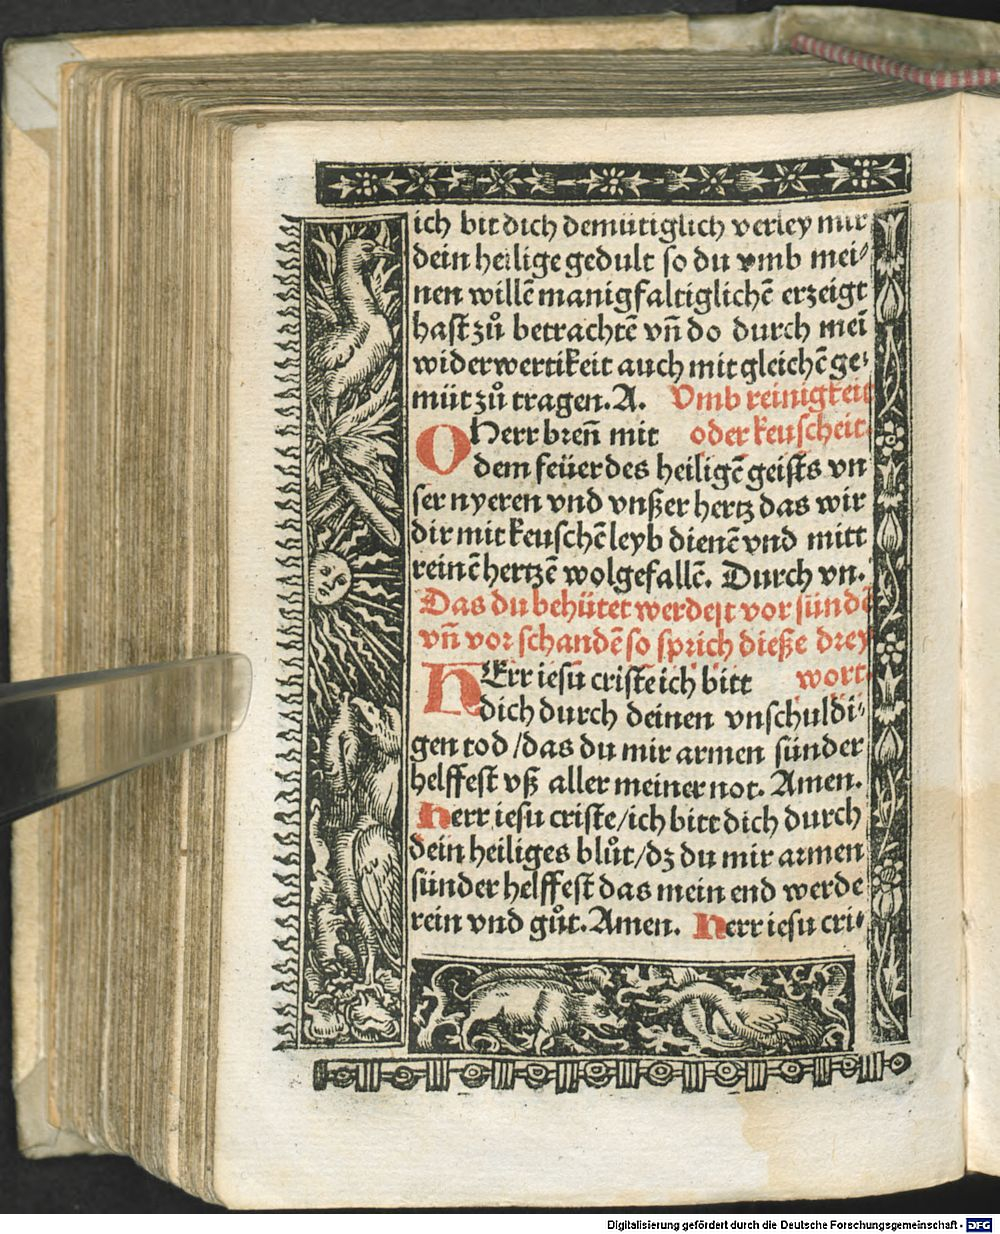 ich bit dich demütiglich verley mir
dein heilige gedult so du vmb mei⸗
nen willē manigfaltiglichē erzeigt
hast zů betrachtē vn̄ do durch mei
widerwertikeit auch mit gleichē ge⸗
müt zů tragen. A. Vmb reinigkeit
O Herr bren̄ mit oder keuscheit.
dem feüer des heiligē geists vn
ser nyeren vnd vnßer hertz das wir
dir mit keuschē leyb dienē vnd mitt
reinē hertzē wolgefallē. Durch vn.
Das du behütet werdest vor sündē
vn̄ vor schandē so sprich dieße drey
HErr iesu criste ich bitt wort.
dich durch deinen vnschuldi⸗
gen tod / das du mir armen sünder
helffest vß aller meiner not. Amen.
Herr iesu criste / ich bitt dich durch
dein heiliges blůt / dz du mir armen
sünder helffest das mein end werde
rein vnd gůt. Amen. Herr iesu cri⸗
Digitalisierung gefördert durch die Deutsche Forschungsgemeinschaft - DFG